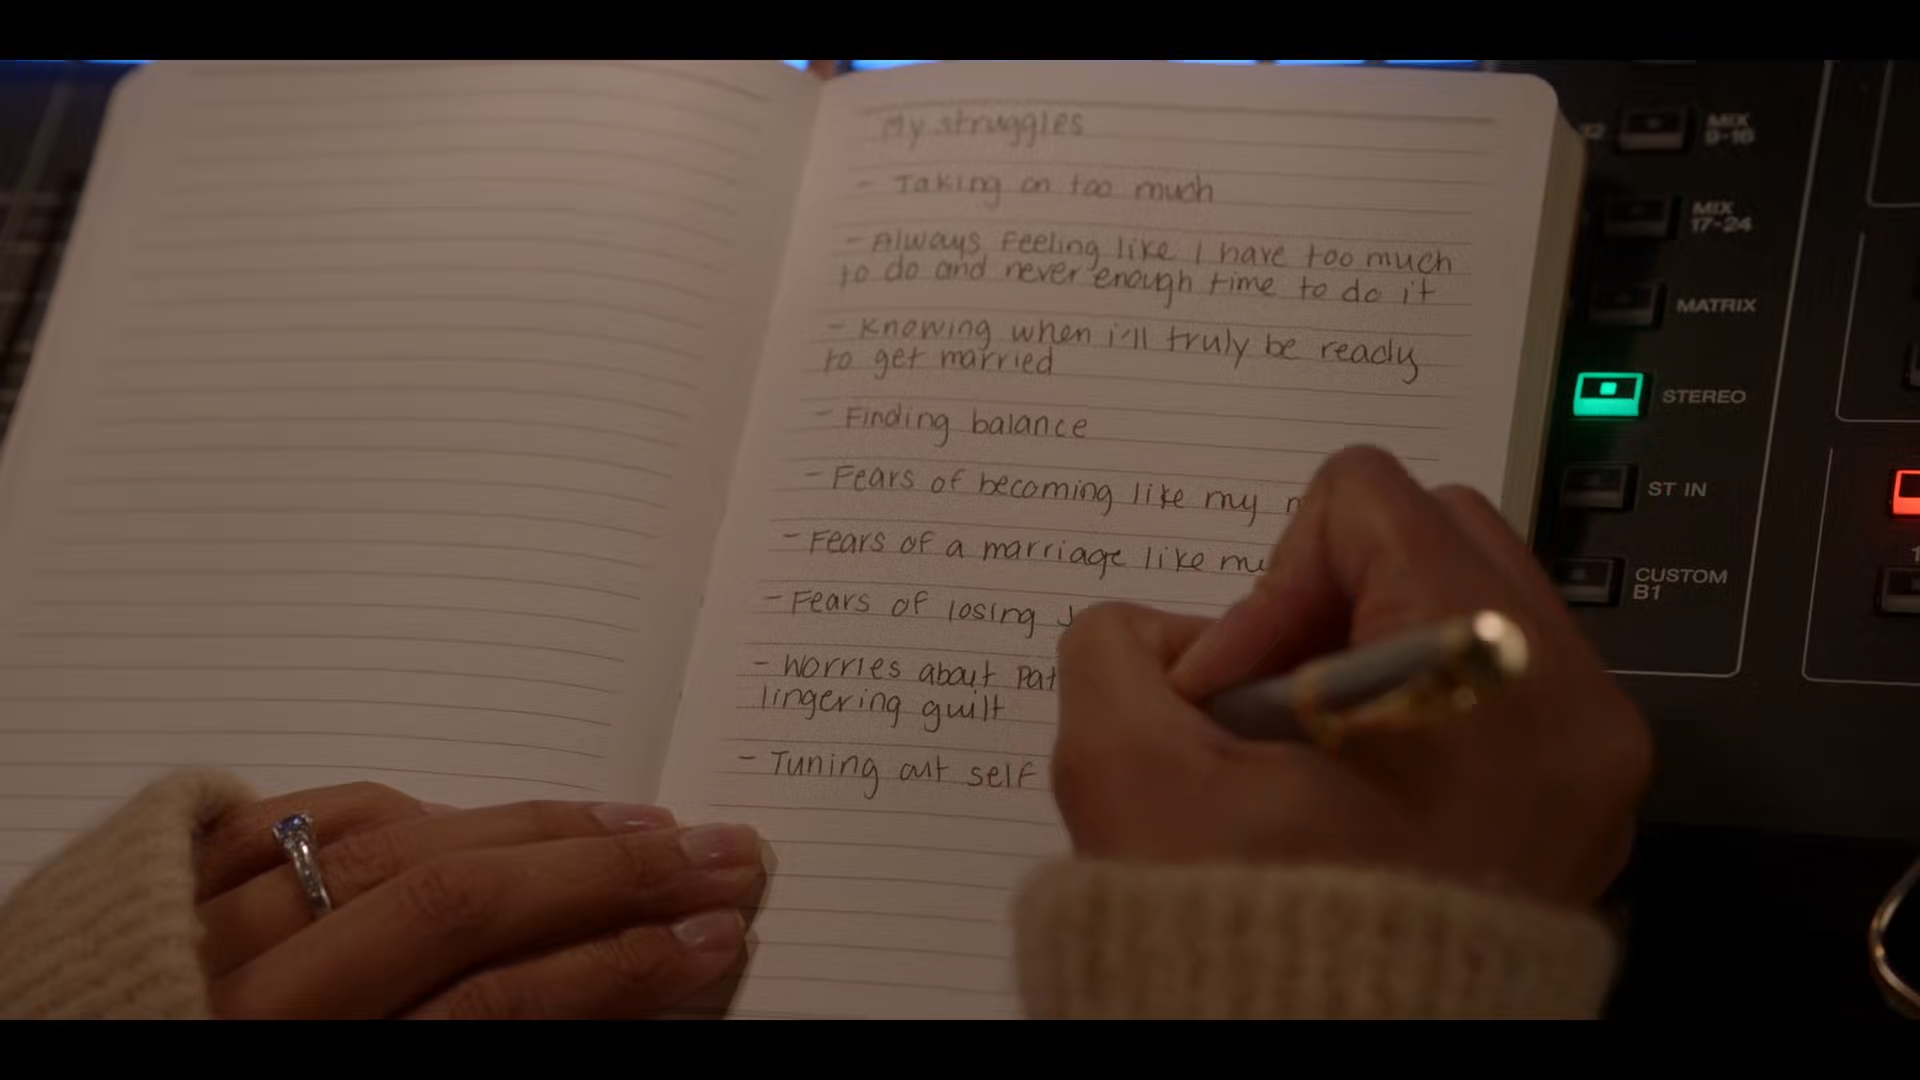 My struggles
- Taking on too much
- Always feeling like I have too much
to do and never enough time to do it
- Knowing when i'll truly be ready
to get married
- Finding balance
- Fears of becoming like my
- Fears of a marriage like
- Fears of losing
- Worries about
lingering guilt
- Tuning out self
MIX
9-16
MIX
17-24
MATRIX
STEREO
ST IN
CUSTOM
B1